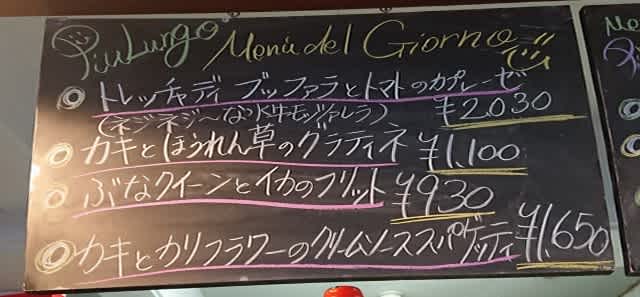 PiuLungo Menú del Giorno
トレッチャディブッファラとトマトのカプレーゼ
(ネジネジ〜な水牛モッツァレラ) ¥2.030
カキとほうれん草のグラティネ ¥1,100
ぶなクイーンとイカのフリット ¥930
カキとカリフラワーのクリームソーススパゲッティ ¥1,650